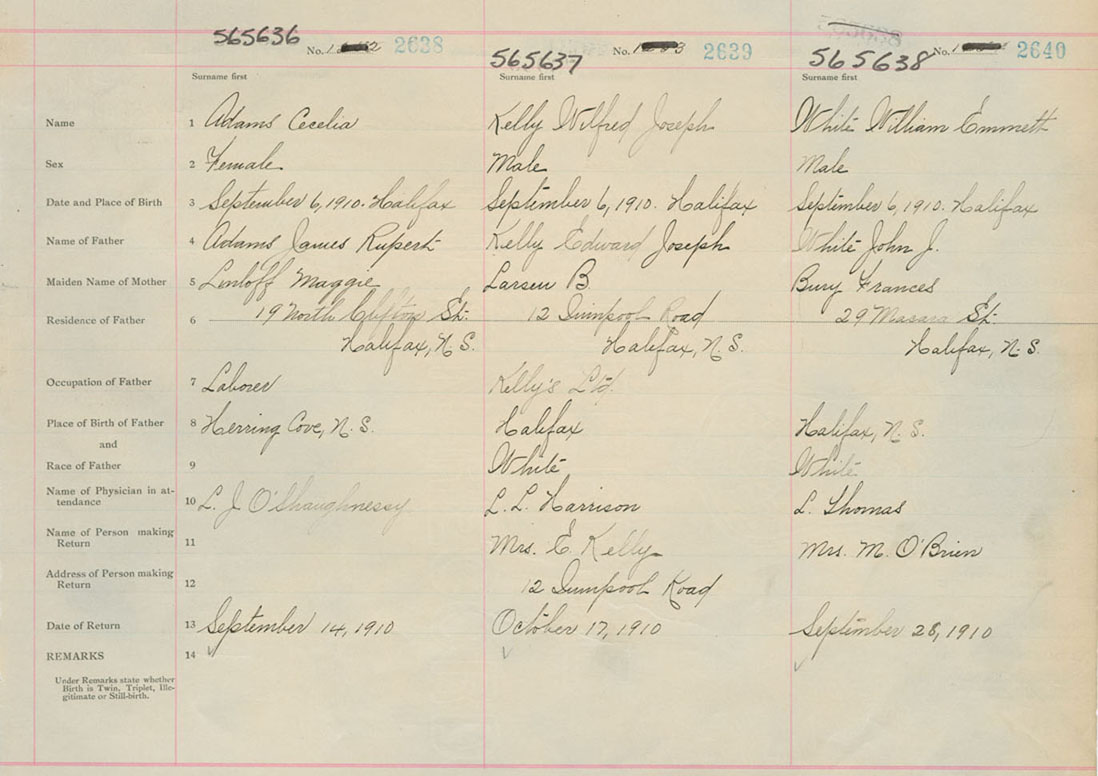 565636 No. 2638 565637 No. 2639 565638 No. 2640
Surname first Surname first Surname first
Name 1 Adams Cecelia Kelly Wilfred Joseph White William Emmett
Sex 2 Female Male Male
Date and Place of Birth 3 September 6, 1910. Halifax September 6, 1910. Halifax September 6, 1910. Halifax
Name of Father 4 Adams James Rupert Kelly Edward Joseph White John J.
Maiden Name of Mother 5 Maggie Larsen B Bury Frances
Residence of Father 6 19 North Clifton St. 12 Road 29 St.
Halifax, N.S. Halifax, N.S. Halifax, N.S.
Occupation of Father 7 Laborer Kelly's Ltd.
Place of Birth of Father 8 Herring Cove, N.S. Halifax Halifax, N.S.
and
Race of Father 9 White White
Name of Physician in at-
tendance 10 L. J. O'Shaughnessy L. L. Harrison L. Thomas
Name of Person making
Return 11 Mrs. E Kelly Mrs. M. O'Brien
Address of Person making
Return 12 12 Road
Date of Return 13 September 14, 1910 October 17, 1910 September 28, 1910
REMARKS 14
Under Remarks state whether
Birth is Twin, Triplet, Ille-
gitimate or Still-birth.